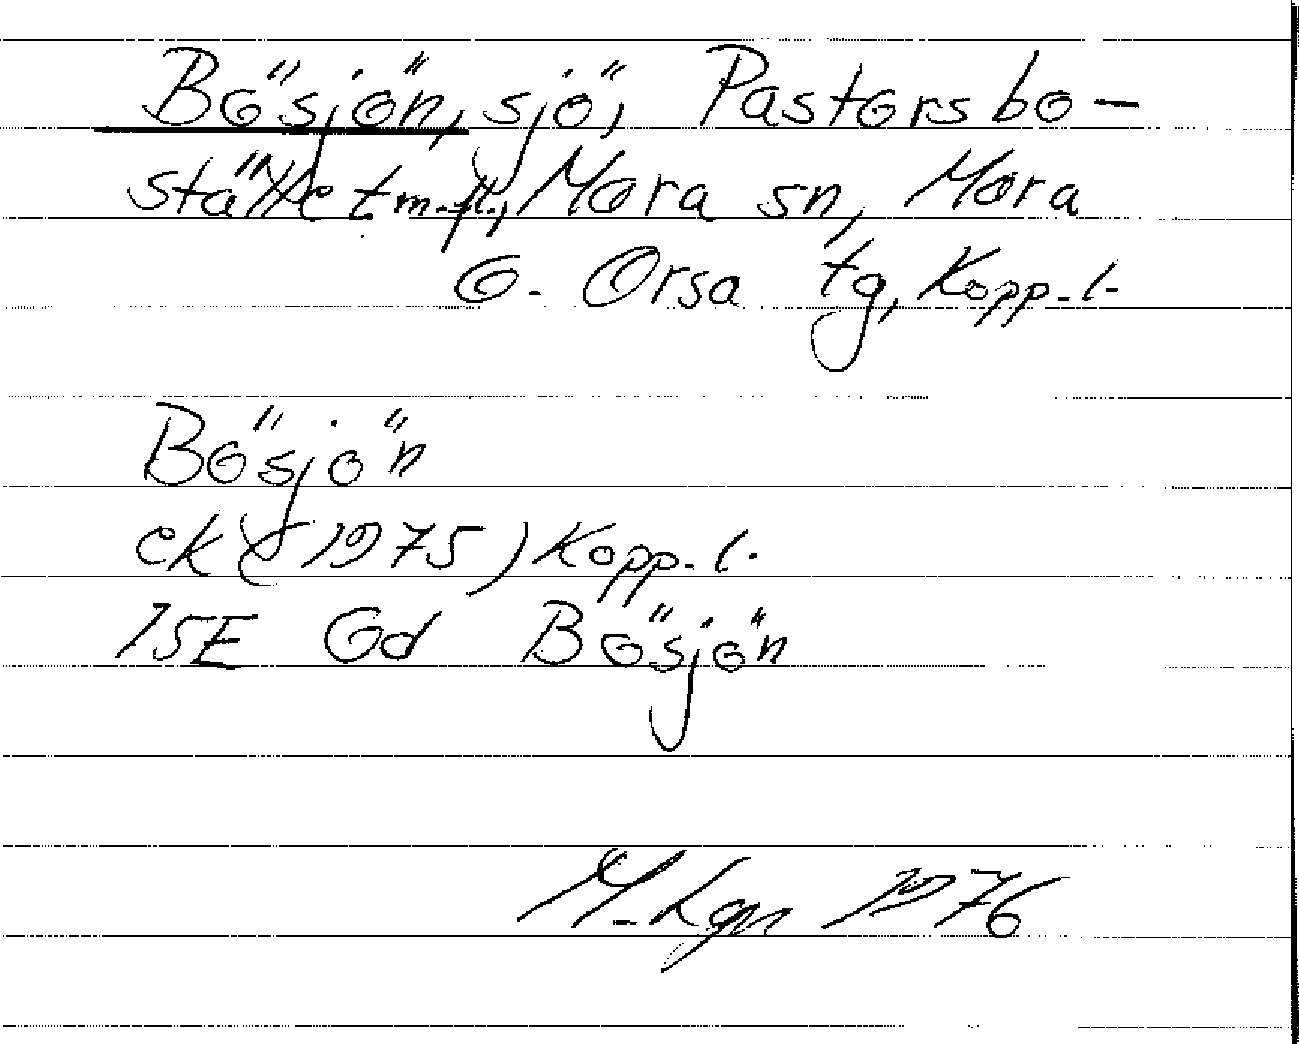 Bösjön, sjö, Pastorsbo-
stället m.fl., Mora sn, Mora
o. Orsa tg, Kopp. l.
Bösjön
ek (1975) Kopp. l.
15E Gd Bösjön
1976